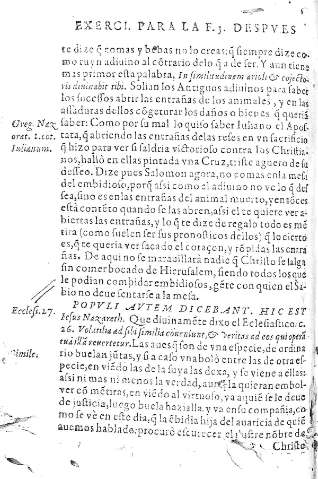 EXERCI. PARA LA F. 3. DESPVES
te dize q̃ comas y bebas no lo creas: q̃ siempre dize co-
mo ruyn adiuino al cõtrario de lo q̃ a de ser. Y aun tiene
mas primor esta palabra, In similitudinem arioli & coiecto-
ris diuinabit tibi. Solian los Antiguos adiuinos para saber
los sucessos abrir las entrañas de los animales, y en las
assaduras dellos cõgeturar los daños o bienes q̃ queriã
saber: Como por su mal lo quiso saber Iuliano el Apos-
Greg. Naz.
tata, q̃ abriendo las entrañas de las reses en vn sacrificio
orat. 1. cot.
q̃ hizo para ver si saldria victorioso contra los Christia-
Iulianum.
nos, halló en ellas pintada vna Cruz, triste aguero de su
desseo. Dize pues Salomon agora, no comas en la mesa
del embidioso, porq̃ assi como el adiuino no ve lo q̃ des-
sea, sino es en las entrañas del animal muerto, y entõces
está contẽto quando se las abren, assi el te quiere ver a-
biertas las entrañas, y lo q̃ te dize de regalo todo es mẽ
tira (como suelen ser sus pronosticos dellos) q̃ lo cierto
es, q̃ te queria ver sacado el coraçon, y rõpidas las entra
ñas. De aqui no se marauillará nadie q̃ Christo se salga
sin comer bocado de Hierusalem, siendo todos los que
le podian combidar embidiosos, gẽte con quien el Sa-
bio no deue sentarse a la mesa.
POPVLI AVTEM DICEBANT. HIC EST
Ecclesi. 27.
Iesus Nazareth. Que diuinamẽte dixo el Ecclesiastico. c.
26. Volatilia ad sibi similia conueniunt, & veritas ad eos qui operã
tur illã reuertetur. Las aues q̃ son de vna especie, de ordina
Simile.
rio buelan jũtas, y si a caso vna boló entre las de otra es-
pecie, en viẽdo las de la suya las dexa, y se viene a ellas:
assi ni mas ni menos la verdad, aunq̃ la quieran embol-
ver cõ mẽtiras, en viẽdo al virtuoso, ya aquie se le deue
de justicia, luego buela hazia alla, y va en su compañia, co
mo se vè en este dia, q̃ la ẽbidia hija del auaricia de quiẽ
auemos hablado, procurò escurecer el ilustre nõbre de
Christo